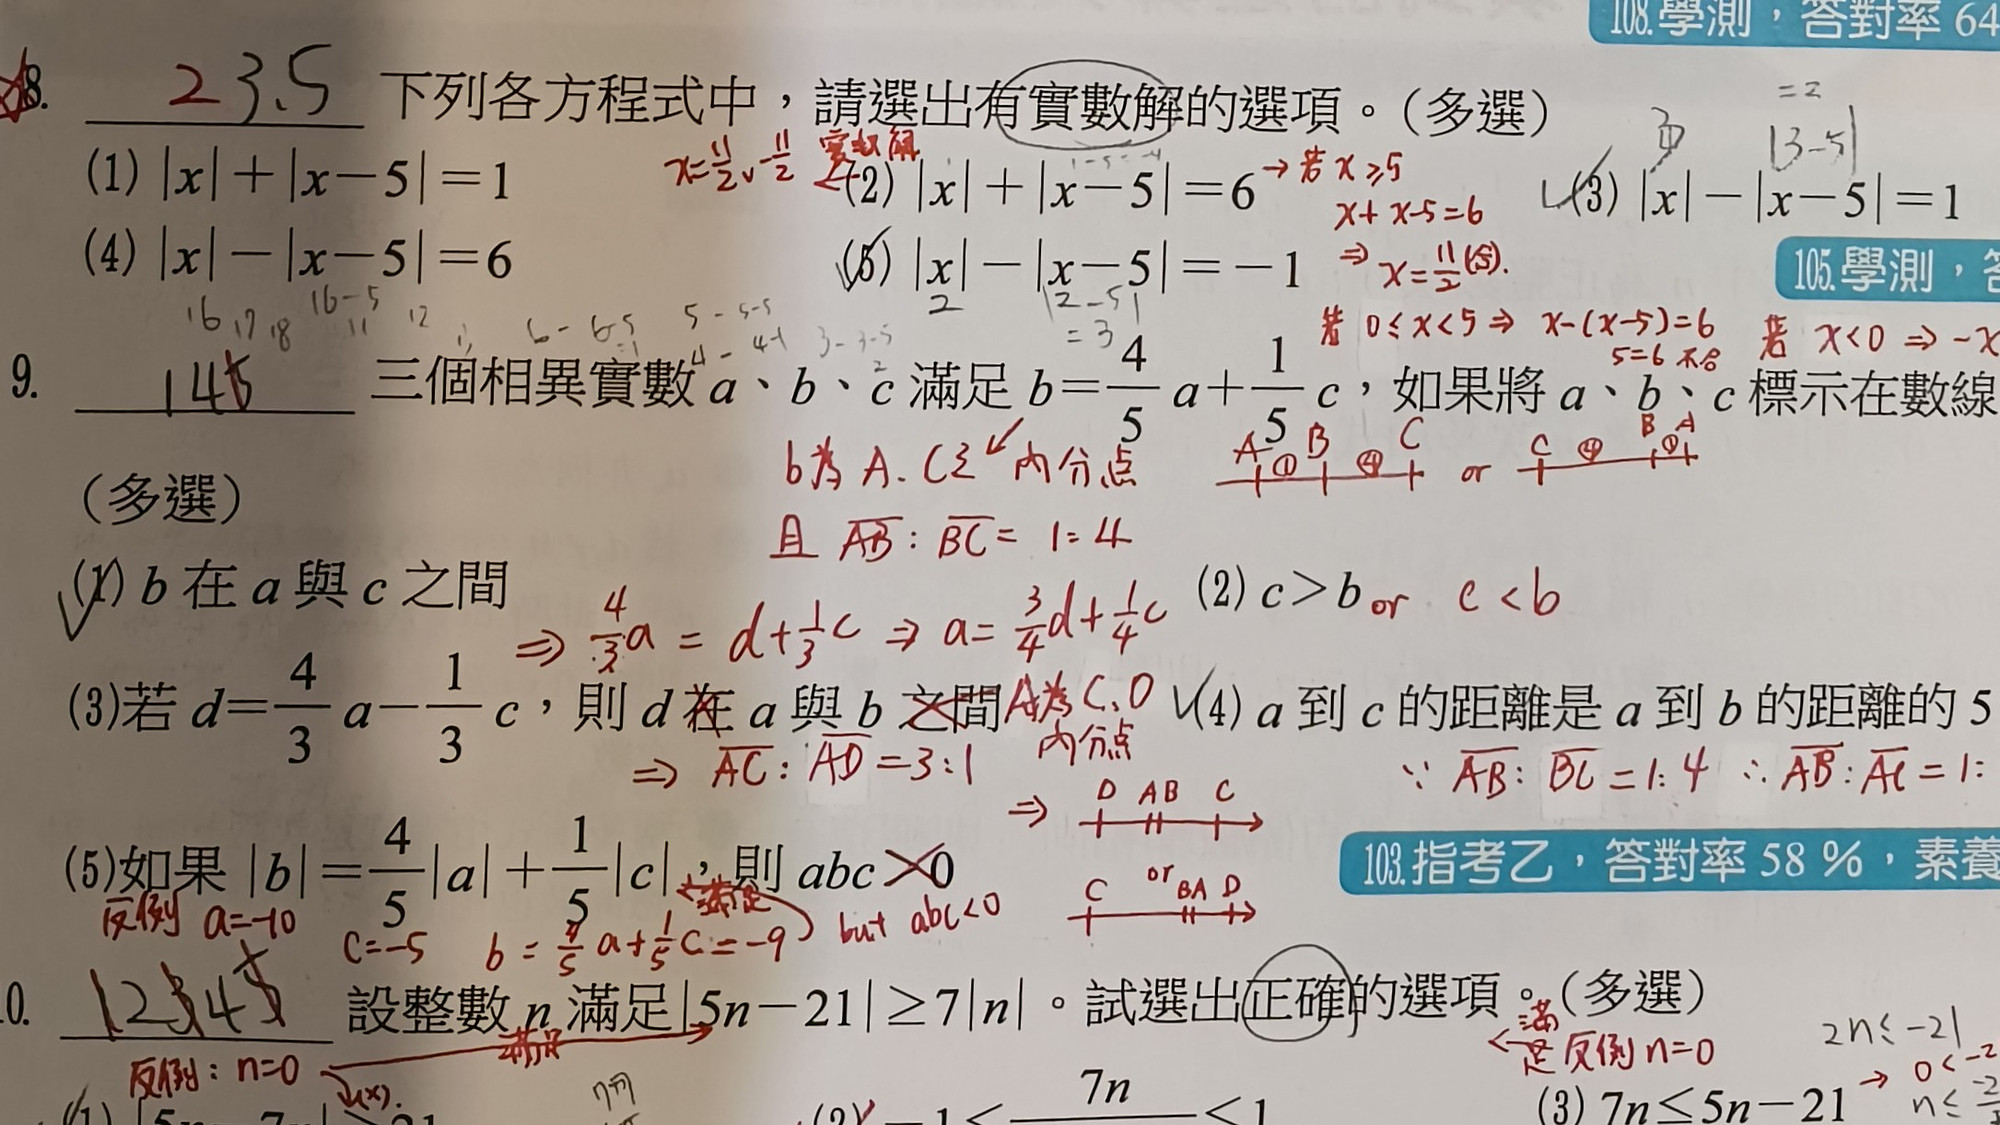 108.學測，答對率 64
8. 2 3.5 下列各方程式中，請選出有實數解的選項。（多選）
=2
|3-5|
(1) |x|+|x-5|=1
x=11/2, -11/2 實數解
(2) |x|+|x-5|=6 → 若 x≥5
x+x-5=6
⇒ x=11/2 (合).
(3) |x|-|x-5|=1
(4) |x|-|x-5|=6
(5) |x|-|x-5|=-1
2 |2-5|
=3
105.學測，答
16 17 18 16-5 11 12
若 0≤x<5 ⇒ x-(x-5)=6
5=6 不合
若 x<0 ⇒ -x
9. 145 三個相異實數 a、b、c 滿足 b=4/5 a+1/5 c，如果將 a、b、c 標示在數線
b為 A、C之內分点
A ① B ④ C or C ④ B ① A
（多選）
且 AB：BC = 1:4
(1) b 在 a 與 c 之間
(2) c>b or c<b
⇒ 4/3 a = d+1/3 c ⇒ a= 3/4 d+1/4 c
(3)若 d=4/3 a-1/3 c，則 d 在 a 與 b 之間 A為 C、D 內分点
(4) a 到 c 的距離是 a 到 b 的距離的 5
⇒ AC：AD=3:1
∵ AB：BC=1:4 ∴ AB：AC=1:
⇒ D A B C
or
C B A D
103.指考乙，答對率 58 %，素養
(5)如果 |b|=4/5|a|+1/5|c|，則 abc>0
滿足
反例 a=-10 c=-5 b=4/5 a+1/5 c=-9 but abc<0
10. 12345 設整數 n 滿足|5n-21|≥7|n|。試選出正確的選項。（多選）
滿足
反例：n=0
(x).
滿足 反例 n=0
2n≤-21
→ 0<-2
n≤
(1) |5n-7n|≥21
(2) -1≤7n<1
(3) 7n≤5n-21